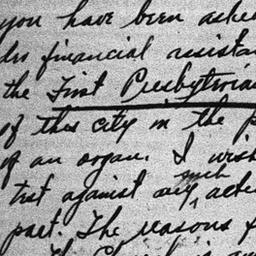 you have been asked
financial assistan
the First Presbyterian
of this city in the p
of an organ. I wish
test against any such actio
part. The reasons f